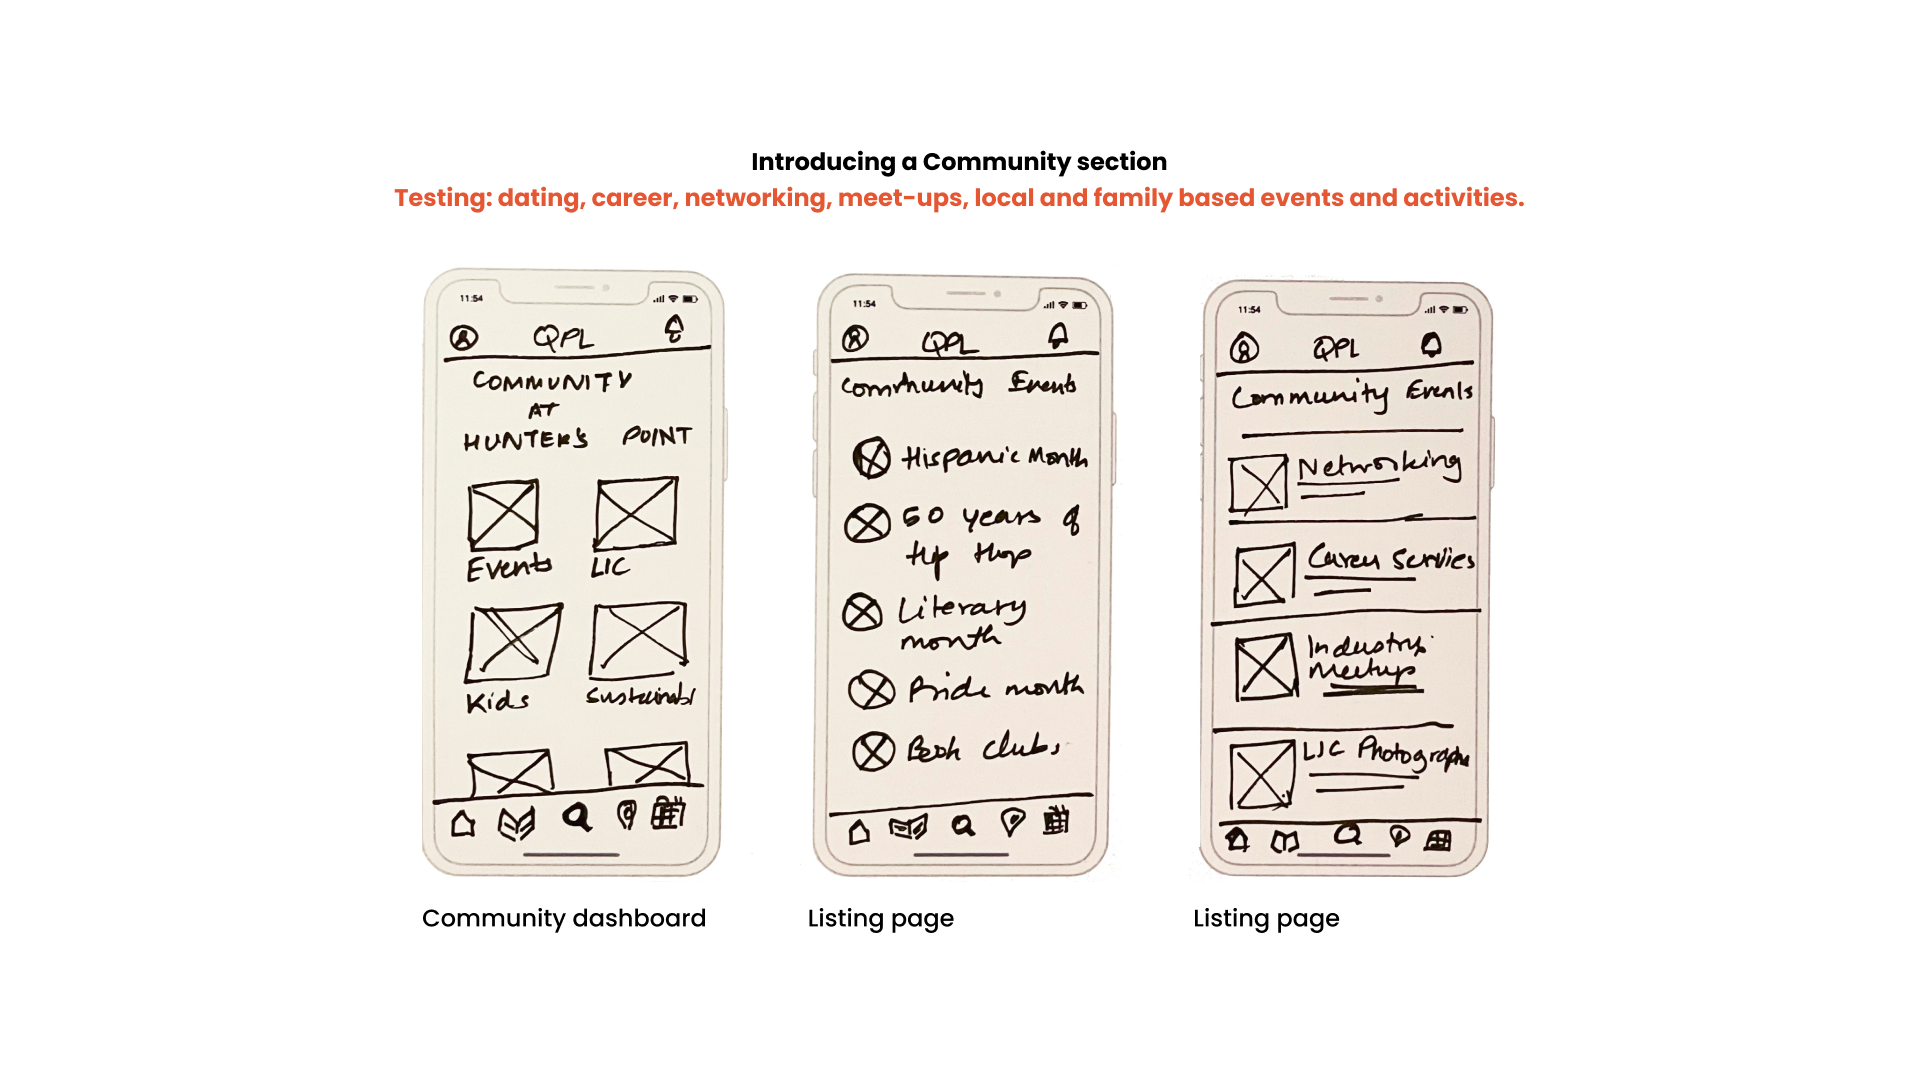 Introducing a Community section
Testing: dating, career, networking, meet-ups, local and family based events and activities.
11:54
QPL
COMMUNITY
AT
HUNTER'S POINT
Events
LIC
Kids
Sustainabl
11:54
QPL
Community Events
Hispanic Month
50 years of
Hip Hop
Literary
month
Pride month
Book clubs
11:54
QPL
Community Events
Networking
Career Services
Industry
Meetup
LIC Photography
Community dashboard
Listing page
Listing page